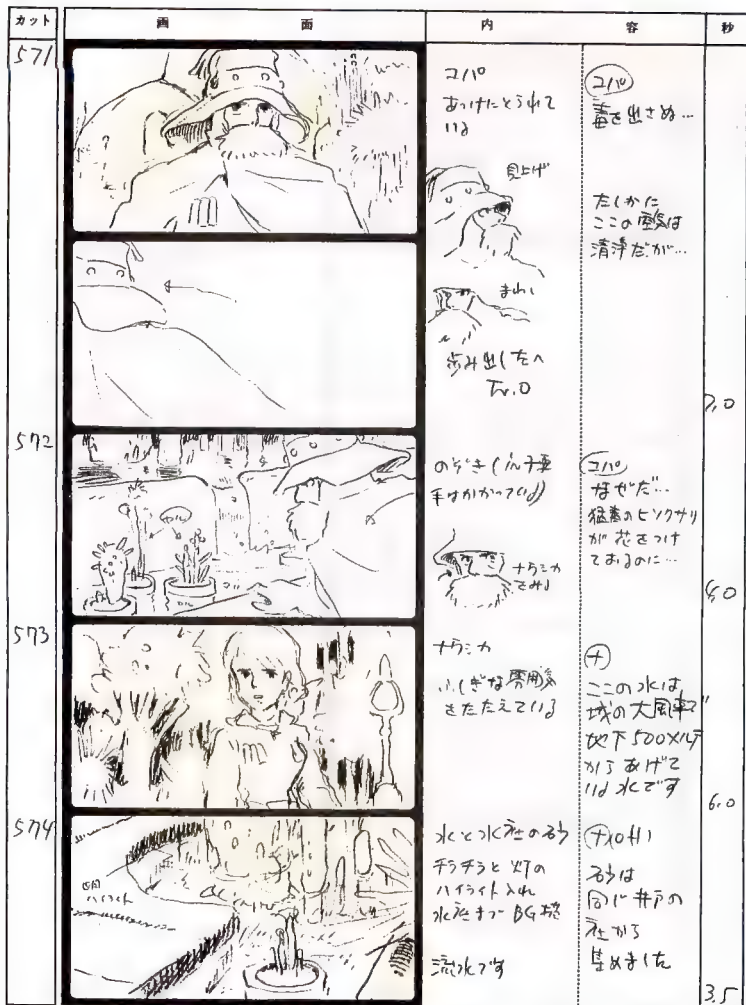 カット
画面
内
容
秒
571
ユパ
あっけにとられて
いる
見上げ
まわし
歩み出し左へ
Fr.O
ユパ
毒を出さぬ…
たしかに
ここの空気は
清浄だが…
7.0
572
のぞき(
手はかかっている)
ナウシカ
をみる
ユパ
なぜだ…
猛毒のヒソクサリ
が花をつけ
ておるのに…
573
ナウシカ
ふしぎな雰囲気
をたたえている
ナ
ここの水は
城の大風車で
地下500メルテ
からあげて
いる水です
6.0
574
ハイライト
水と水底の砂
チラチラと灯の
ハイライト入れ
水底まで BG
流水です
ナ
砂は
同じ井戸の
底から
集めました
3.5